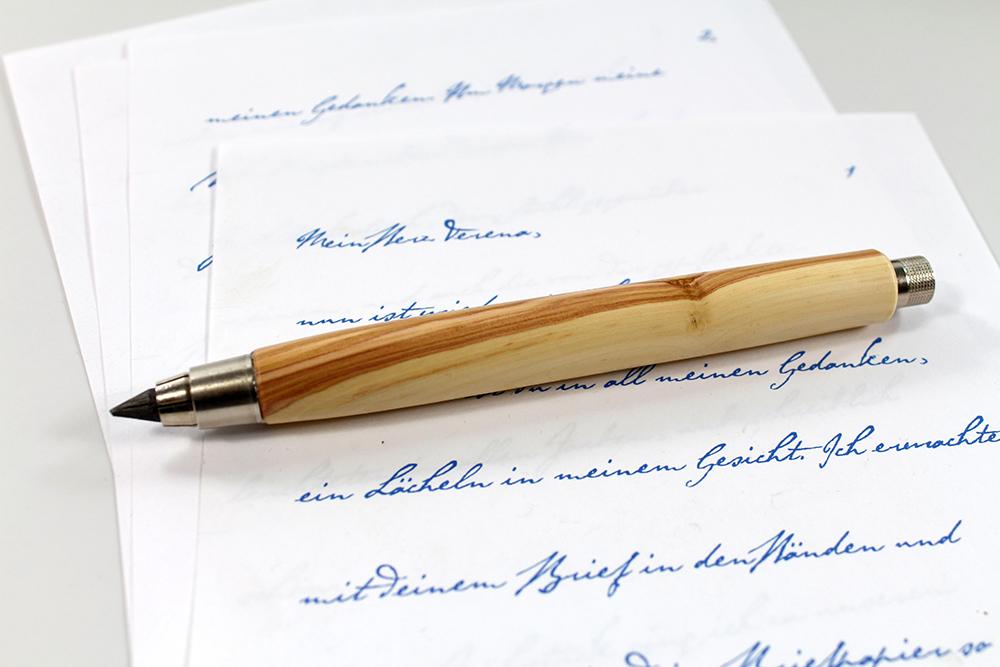 2.
meinen Gedanken. Am Morgen meine
1
Mein Herz Verena,
nun ist
in all meinen Gedanken,
ein Lächeln in meinem Gesicht. Ich erwachte
mit deinem Brief in den Händen und
Briefpapier so